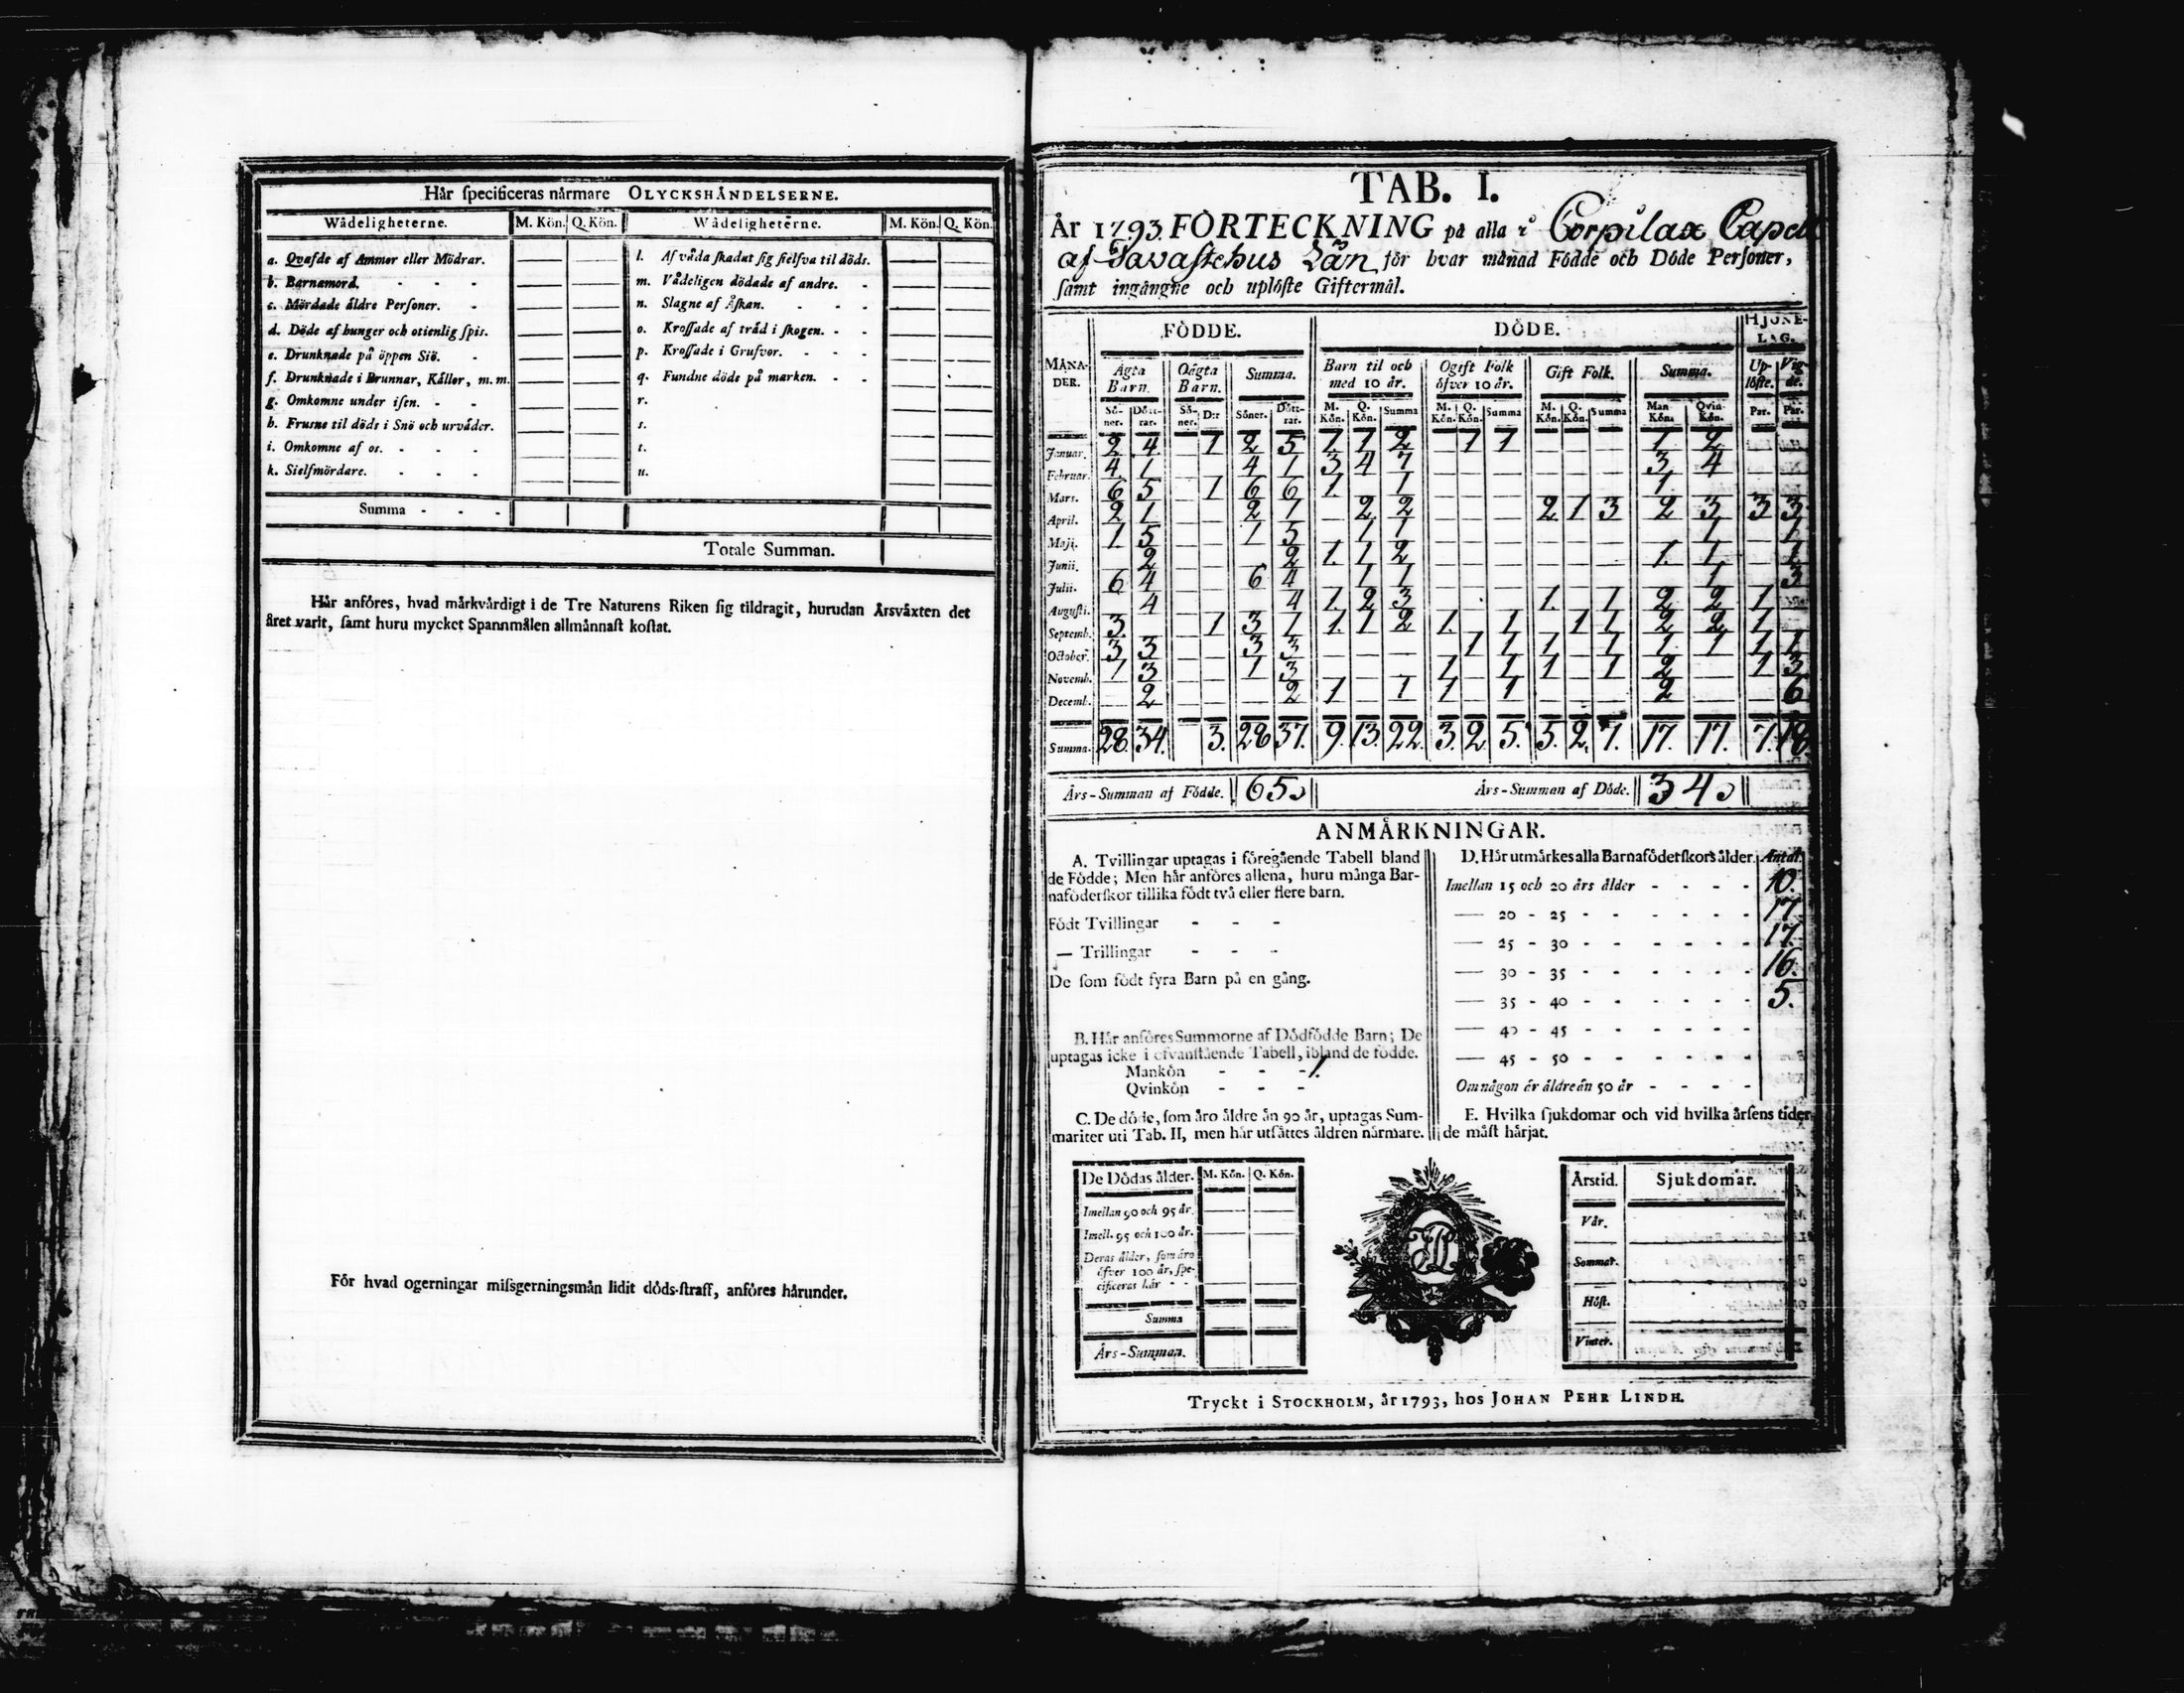 Hår ſpecificeras nårmare OLYCKSHÅNDELSERNE.
Wådeligheterne. M. Kön. Q. Kön. Wådeligheterne. M. Kön. Q. Kön.
a. Qvafde af Ammor eller Mödrar. l. Af våda ſkadat ſig ſielfva til döds.
b. Barnamord. - - - m. Vådeligen dödade af andre. -
c. Mördade åldre Perſoner. - n. Slagne af Åſkan. - - -
d. Döde af hunger och otienlig ſpis. o. Kroſſade af tråd i ſkogen. - -
e. Drunknade på öppen Siö. - p. Kroſſade i Grufvor. - - -
f. Drunknade i Brunnar, Kållor, m. m. q. Fundne döde på marken. - -
g. Omkomne under iſen. - - r.
h. Fruſne til döds i Snö och urvåder. s.
i. Omkomne af os. - - - t.
k. Sielfmördare. - - - u.
Summa - - -
Totale Summan.
Hår anföres, hvad mårkvårdigt i de Tre Naturens Riken ſig tildragit, hurudan Årsvåxten det
året varit, ſamt huru mycket Spannmålen allmånnaſt koſtat.
För hvad ogerningar miſsgerningsmån lidit döds-ſtraff, anföres hårunder.
TAB. I.
År 1793. FÖRTECKNING på alla i Corpilax Capell
af Tavaſtehus Län för hvar månad Födde och Döde Perſoner,
ſamt ingångne och uplöſte Giftermål.
FÖDDE. DÖDE. HJONE-
LAG.
MÅNA-
DER. Ägta
Barn. Oågta
Barn. Summa. Barn til och
med 10 år. Ogift Folk
öfver 10 år. Gift Folk. Summa. Up-
löſte. Vig-
de.
Sö-
ner. Dött-
rar. Sö-
ner. D:r Söner. Dött-
rar. M.
Kön. Q.
Kön. Summa M.
Kön. Q.
Kön. Summa M.
Kön. Q.
Kön. Summa Man-
Kön. Qvin-
Kön. Par. Par.
Januar. 2 4 1 2 5 1 1 2 1 1 1 2
Februar. 4 1 4 1 3 4 7 3 4
Mars. 6 5 1 6 6 1 1 1
April. 2 1 2 1 2 2 2 1 3 2 3 3 3
Maji. 1 5 1 5 1 1 1 1
Junii. 2 2 1 1 2 1 1 1
Julii. 6 4 6 4 1 1 1 3
Auguſti. 4 4 1 2 3 1 1 2 2 1
Septemb. 3 1 3 1 1 1 2 1 1 1 1 2 2 1
October. 3 3 3 3 1 1 1 1 1 1 1 1
Novemb. 1 3 1 3 1 1 1 1 2 1 3
Decemb. 2 2 1 1 1 1 2 6
Summa. 28. 34. 3. 28 37. 9. 13. 22. 3. 2 5. 5. 2. 7. 17. 17. 7. 18.
Års-Summan af Födde. 65 Års-Summan af Döde. 34
ANMÅRKNINGAR.
A. Tvillingar uptagas i föregående Tabell bland
de Födde; Men hår anföres allena, huru många Bar-
naföderſkor tillika födt två eller flere barn.
Födt Tvillingar - - -
— Trillingar - - -
De ſom födt fyra Barn på en gång.
B. Hår anföres Summorne af Dödfödde Barn; De
uptagas icke i ofvanſtående Tabell, ibland de födde.
Mankön - - - 1.
Qvinkön - - -
C. De döde, ſom åro åldre ån 90 år, uptagas Sum-
mariter uti Tab. II, men hår utſåttes åldren nårmare.
D. Hår utmårkes alla Barnaföderſkors ålder. Antal.
Imellan 15 och 20 års ålder - - - - 10.
— 20 - 25 - - - - - - 17
— 25 - 30 - - - - - - 17.
— 30 - 35 - - - - - - 16.
— 35 - 40 - - - - - - 5.
— 40 - 45 - - - - - -
— 45 - 50 - - - - - -
Om någon år åldre ån 50 år - - - -
E. Hvilka ſjukdomar och vid hvilka årſens tider
de måſt hårjat.
De Dödas ålder. M. Kön. Q. Kön.
Imellan 90 och 95 år.
Imell. 95 och 100 år.
Deras ålder, ſom åro
öfver 100 år, ſpe-
cificeras hår - -
Summa
Års-Summan.
Årstid. Sjukdomar.
Vår.
Sommar.
Höſt.
Vinter.
Tryckt i STOCKHOLM, år 1793, hos JOHAN PEHR LINDH.